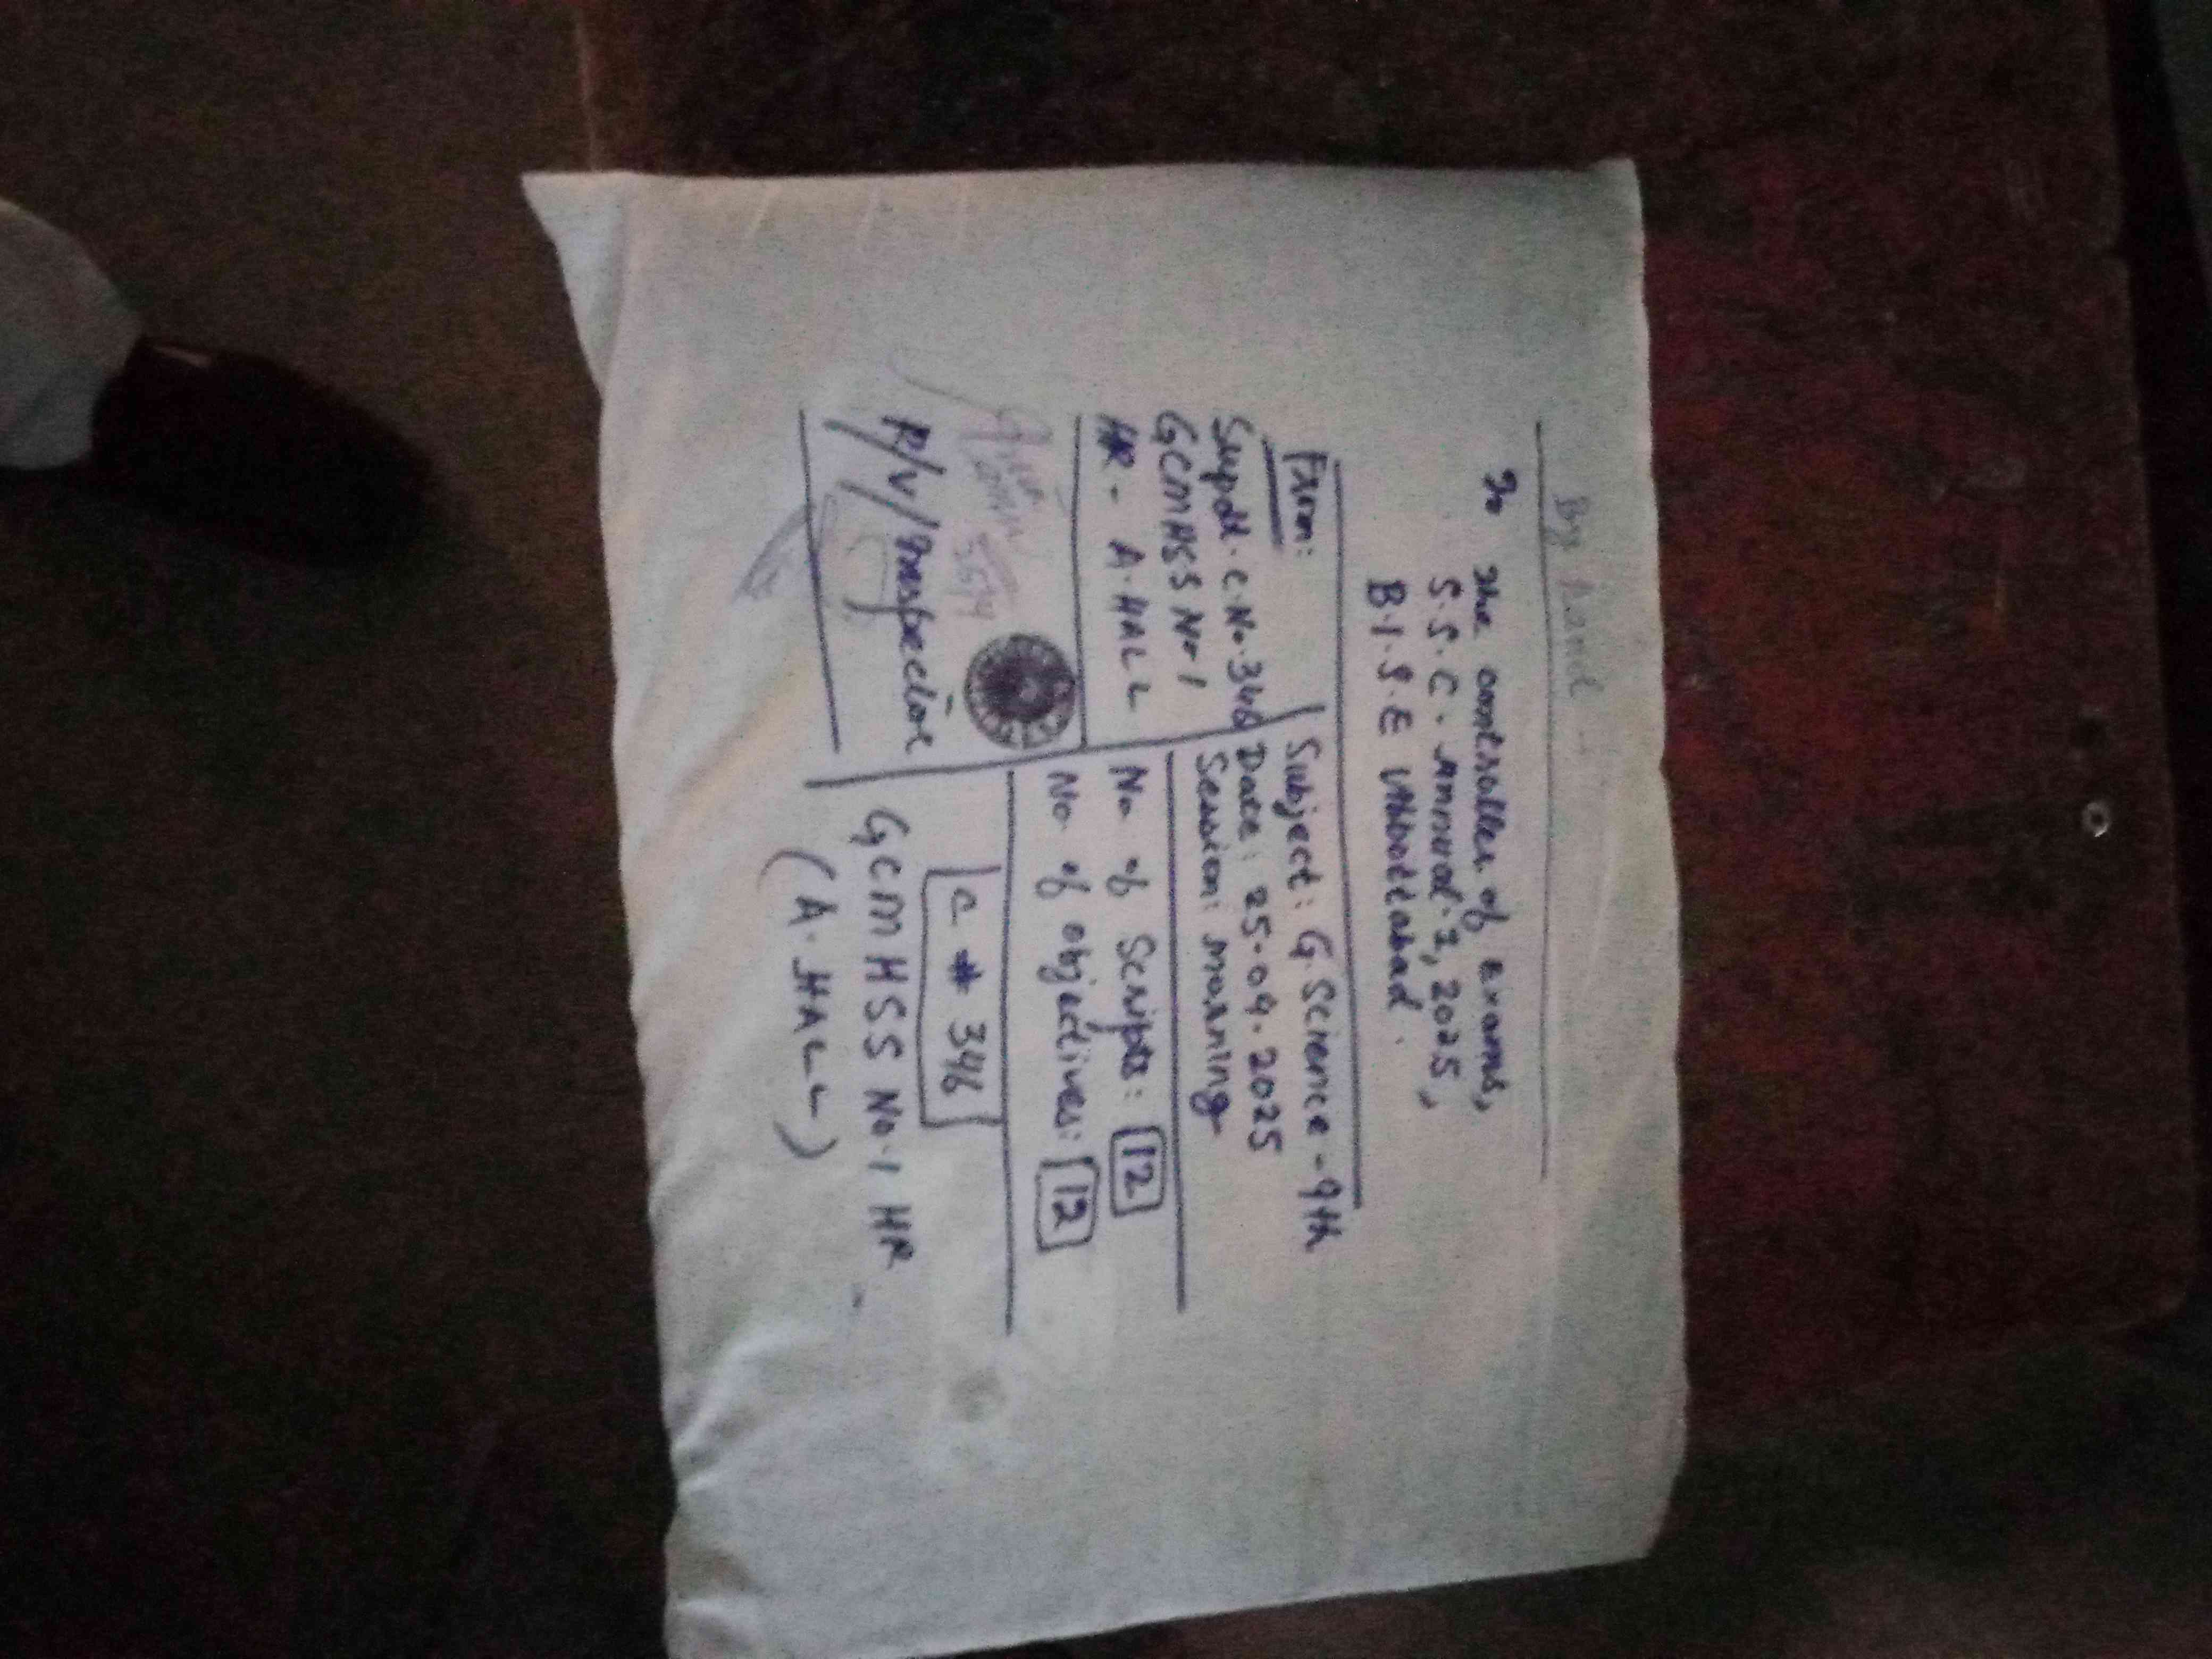 By Hand
To The controller of exams,
S.S.C. Annual-2, 2025,
B.I.S.E Abbottabad.
From:
Supdt. C.No.346
GCMHSS No 1
HR - A.HALL
Subject: G.Science-9th
Date: 25.09.2025
Session: Morning
No of Scripts: 12
No. of objectives: 12
R/V/Inspector
C # 346
GCMHSS No.1 HR
(A.HALL)